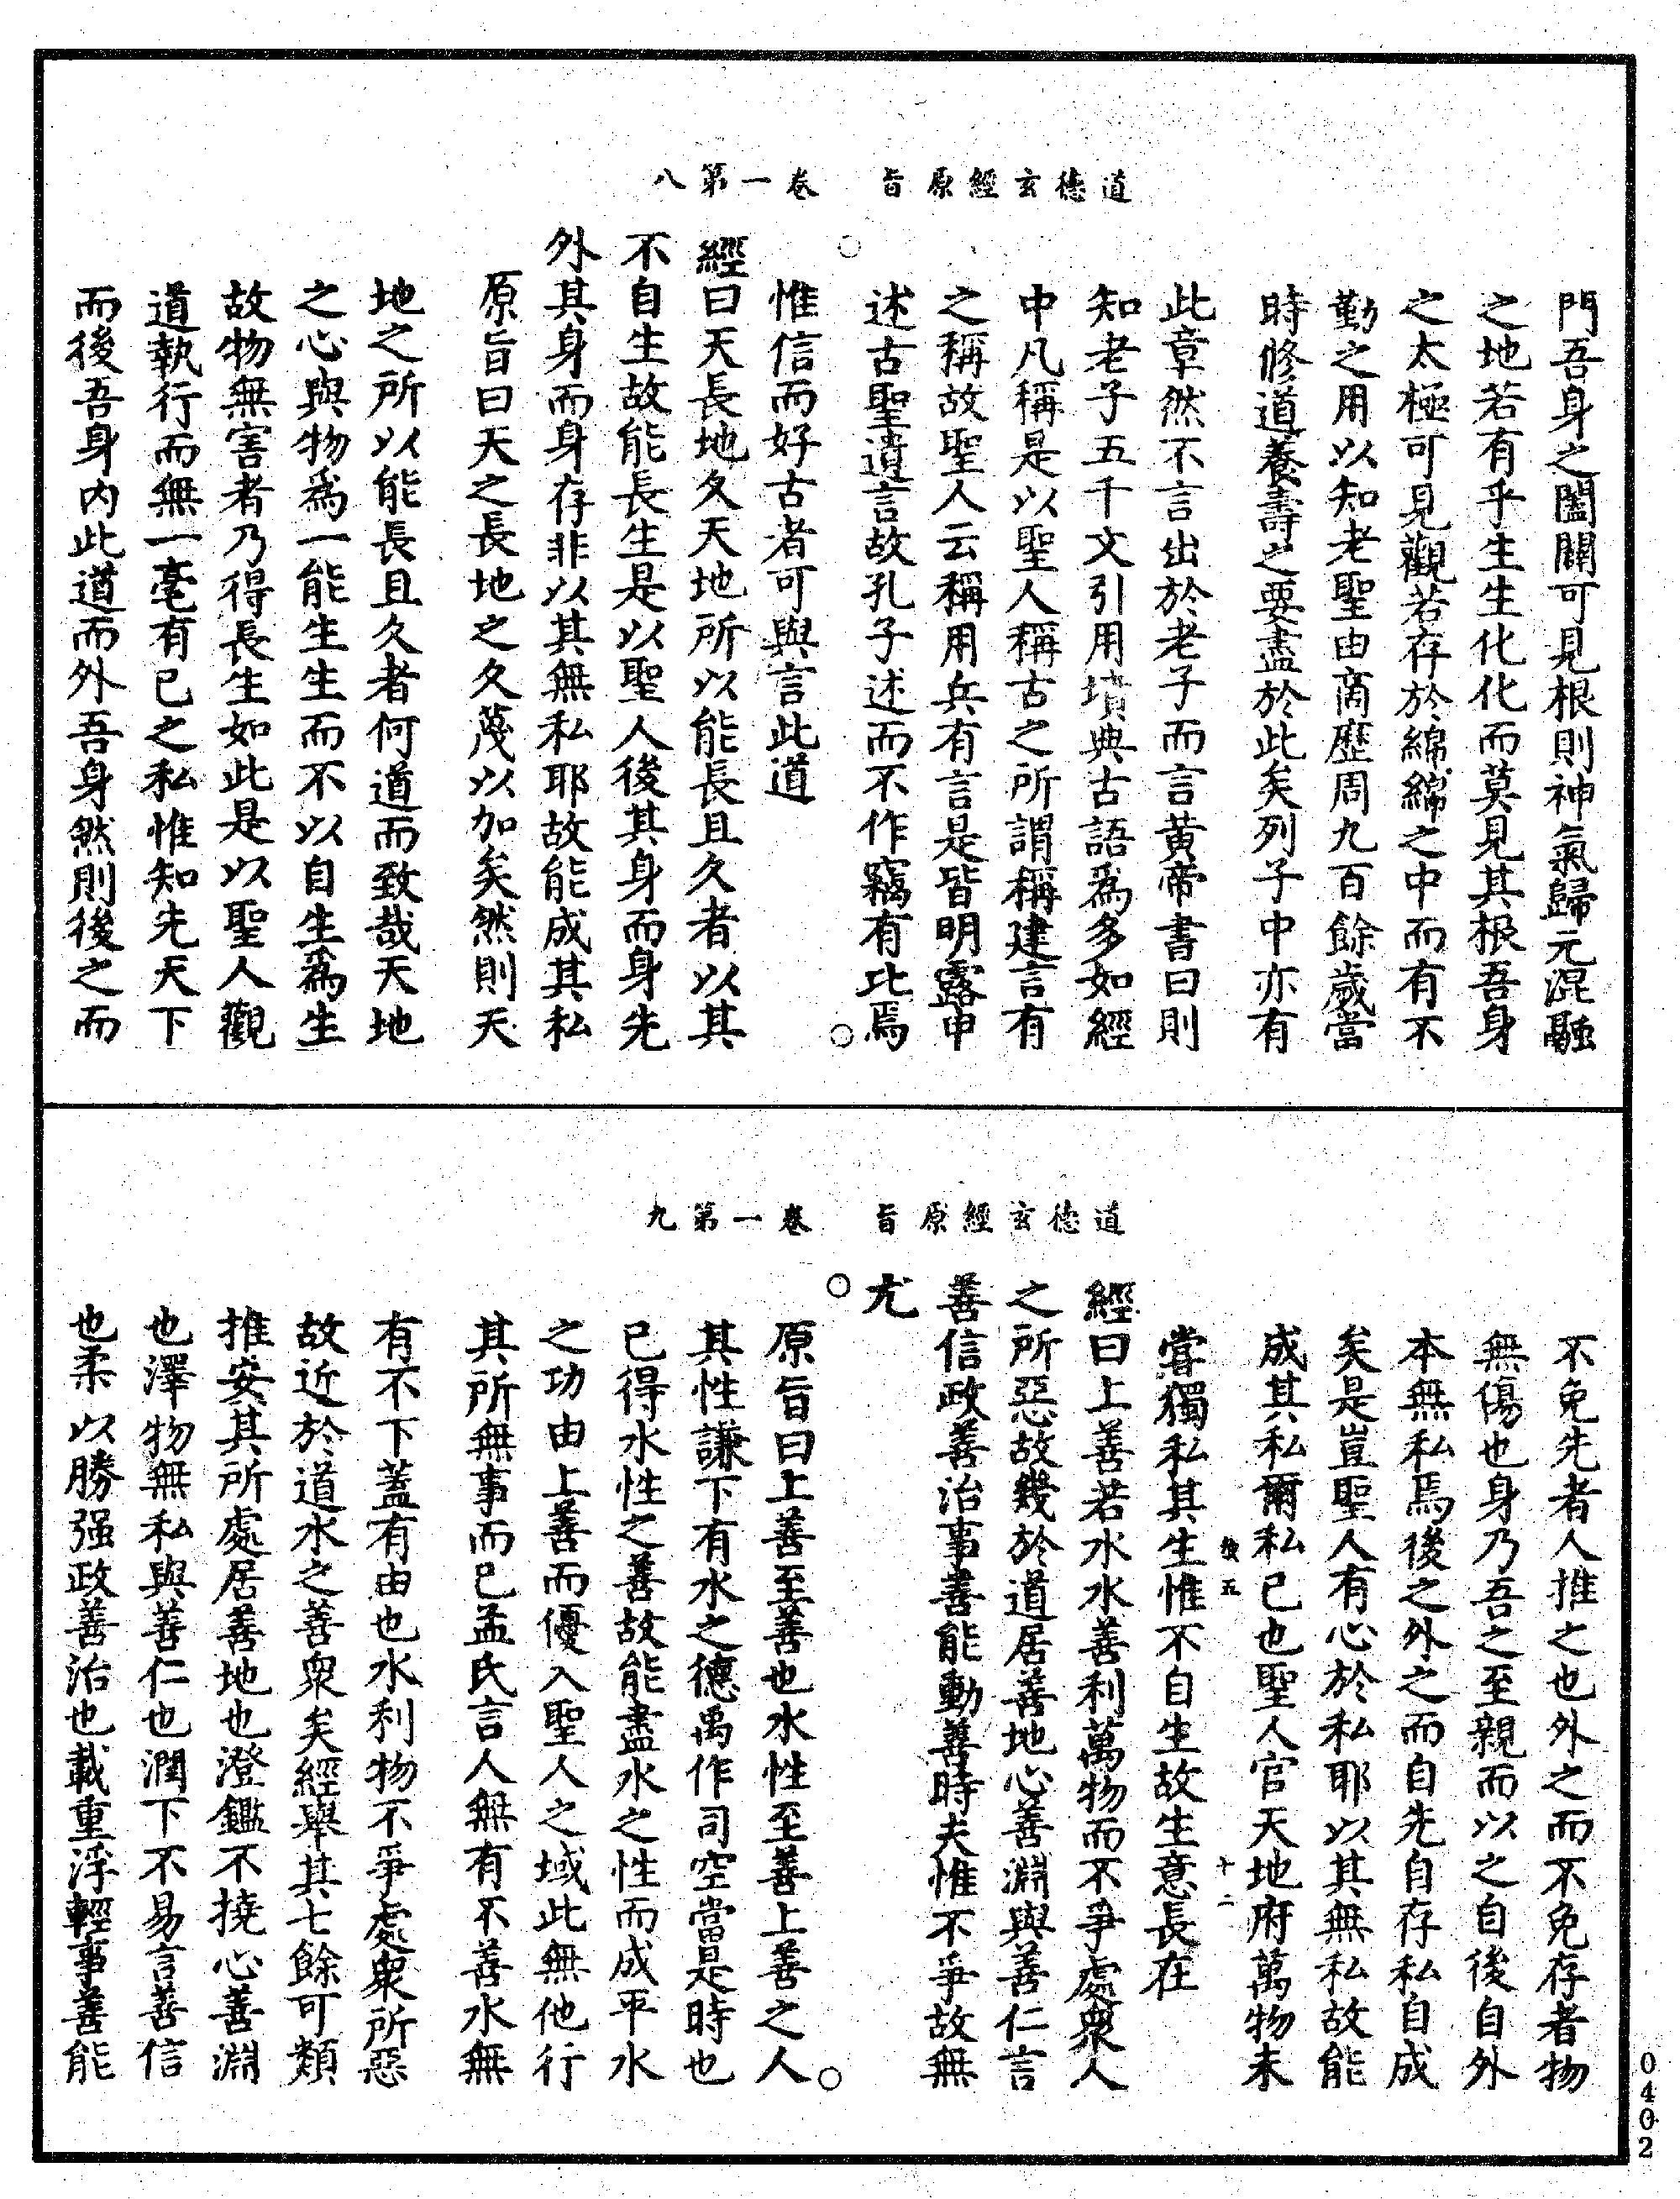 道德玄經原旨　卷一第八
門吾身之闔闢可見根則神氣歸元混融
之地若有乎生生化化而莫見其根吾身
之太極可見觀若存於綿綿之中而有不
勤之用以知老聖由商歷周九百餘歲當
時脩道養壽之要盡於此矣列子中亦有
此章然不言出於老子而言黄帝書曰則
知老子五千文引用墳典古語爲多如經
中凡稱是以聖人稱古之所謂稱建言有
之稱故聖人云稱用兵有言是皆明露申
述古聖遺言故孔子述而不作竊有比焉
惟信而好古者可與言此道
經曰天長地久天地所以能長且久者以其
不自生故能長生是以聖人後其身而身先
外其身而身存非以其無私耶故能成其私
原旨曰天之長地之久蔑以加矣然則天
地之所以能長且久者何道而致哉天地
之心與物爲一能生生而不以自生爲生
故物無害者乃得長生如此是以聖人觀
道執行而無一毫有已之私惟知先天下
而後吾身内此道而外吾身然則後之而
道德玄經原旨　卷一第九
不免先者人推之也外之而不免存者物
無傷也身乃吾之至親而以之自後自外
本無私焉後之外之而自先自存私自成
矣是豈聖人有心於私耶以其無私故能
成其私爾私已也聖人官天地府萬物未
嘗獨私其生惟不自生故生意長在
經曰上善若水水善利萬物而不爭處衆人
之所惡故幾於道居善地心善淵與善仁言
善信政善治事善能動善時夫惟不爭故無
尤
原旨曰上善至善也水性至善上善之人
其性謙下有水之德禹作司空當是時也
已得水性之善故能盡水之性而成平水
之功由上善而優入聖人之域此無他行
其所無事而已孟氏言人無有不善水無
有不下蓋有由也水利物不爭處衆所惡
故近於道水之善衆矣經舉其七餘可類
推安其所處居善地也澄鑑不撓心善淵
也澤物無私與善仁也潤下不易言善信
也柔以勝强政善治也載重浮輕事善能
五
十二
0402